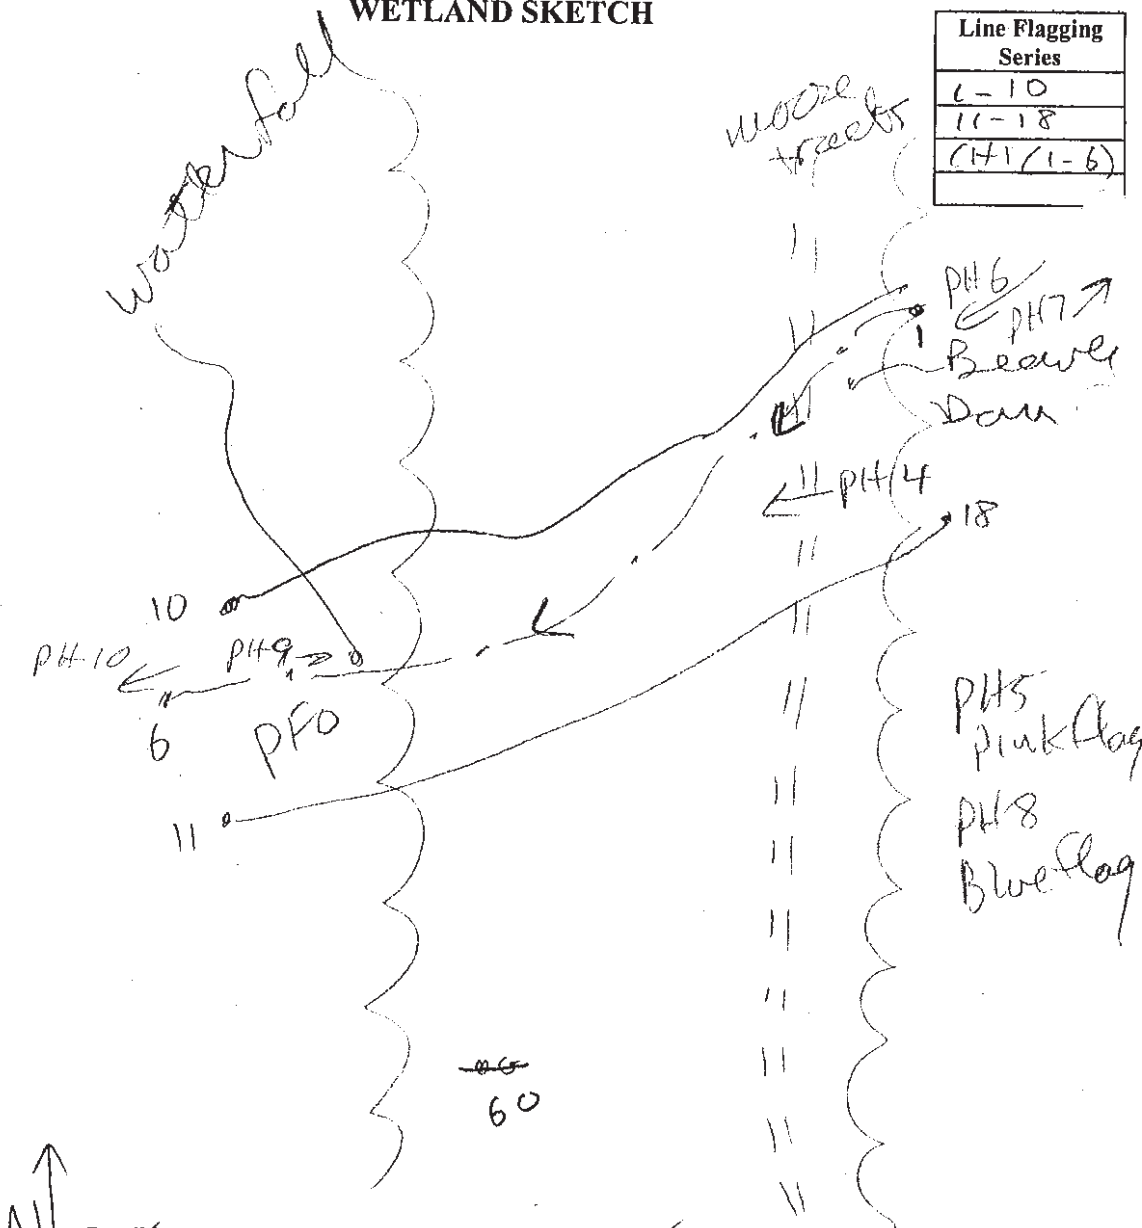 WETLAND SKETCH
Line Flagging
Series
1-10
11-18
CH1 (1-6)
waterfall
moose
PH6
PH7
1
Beaver
Dam
PH4
18
10
PH10
PH9
6
PFO
PH5
pink flag
11
PH8
Blue flag
60
N